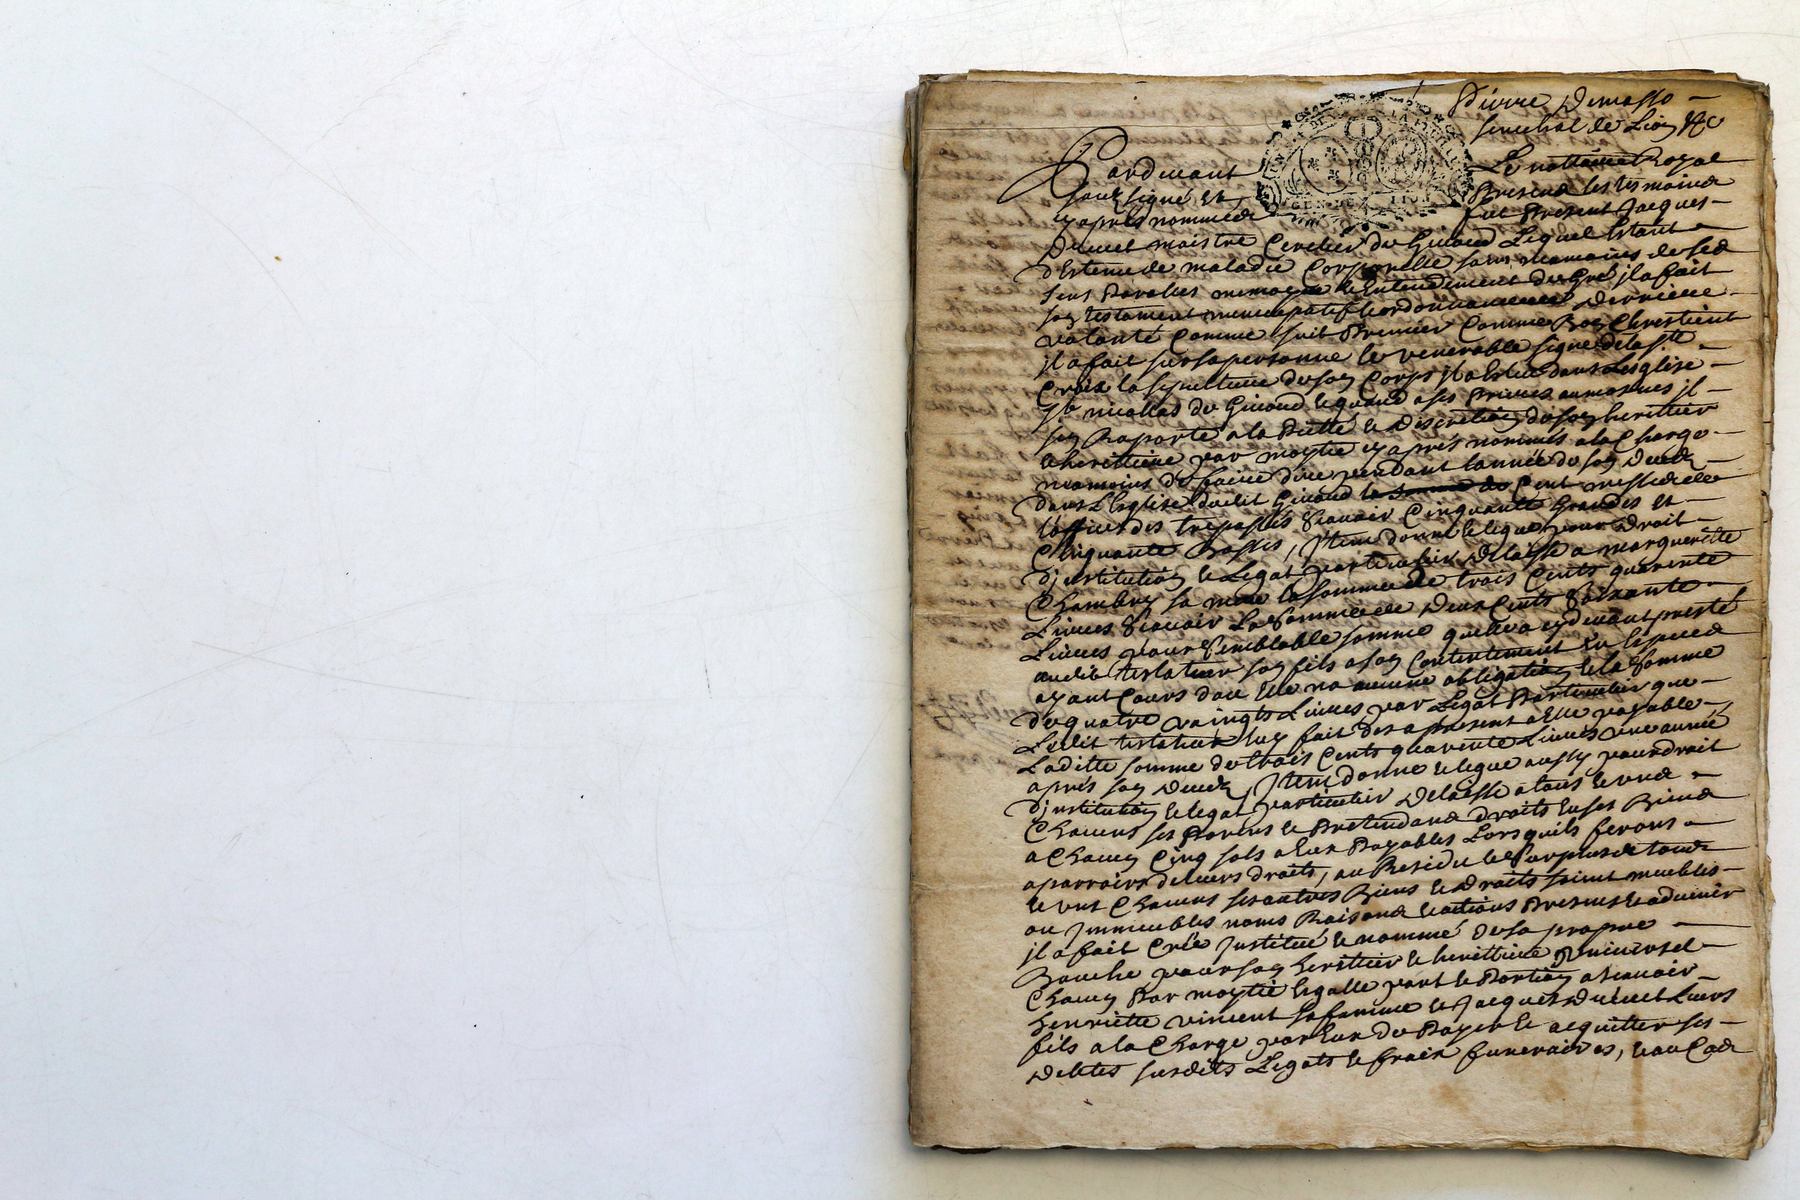 Pierre Demasso
senechal de Lion &c
Pardevant Le nottaire Royal
soubsigné et Presens les tesmoins
cy aprés nommés fut Present Jacques
Ducret maistre Cerclier de Givord Lequel Estant
detenu de maladie Corporelle sain neamoins de ses
sens Parolles memoyre & Entendement de Gré il a fait
son testament nuncupatif & ordonnance derniere
volonté Comme suit Premier Comme Bon Chrestient
il a fait sur sa personne le venerable signe de la ste
Croix la sepulture de son Corps il a Esleue dans Lesglise
st nicollas de Givord & quand a ses Prieres aumosnes il
sen Raporte a la Piette & discretion de son herittier
& herittiere par moytié cy aprés nommés a la Charge
neamoins de faire dire pendant lannée de son decedz
dans L'Eglise dudit Givord Cent messes de
l'office des trepassés scavoir Cinquante Grandes et
Cinquante Basses, Item donne & legue pour droit
d'institution & Legat particulier delaisse a margueritte
Chambry sa mere la somme de trois Cents quarente
Livres scavoir La somme de deux Cents soixante
Livres pour semblable somme quelle a cy devant presté
audit testateur son fils a son Contentement En Especes
ayant Cours dont Elle na aucune obligation & la somme
de quatre vaingts Livres par Legat Particulier que
Ledit testateur luy fait des a present a Elle payable
Ladite somme de trois Cents quarente Livres une année
aprés son decedz, Item donne & legue aussy pour droit
d'institution & legat particulier delaisse a tous & uns
Chacuns ses Parens & Pretendans droits En ses Biens
a Chacun Cinq sols a Eux Payables Lorsquils feront
aparroire de leurs droits, au Residu & surplus de tous
& uns Chacuns ses autres Biens & droits soient meubles
ou Immeubles noms Raisons & actions Presens & advenir
il a fait Créé Institué & nommé de sa propre
Bouche pour son herittier & herittiere universel
Chacun Par moytié Egalle part & Portion a scavoir
henriette vincent sa famme & Jacques Ducret Leurs
fils a la Charge par Eux de Payer & acquitter ses
debtes susdits Legats & fraix funeraires, & au Cas